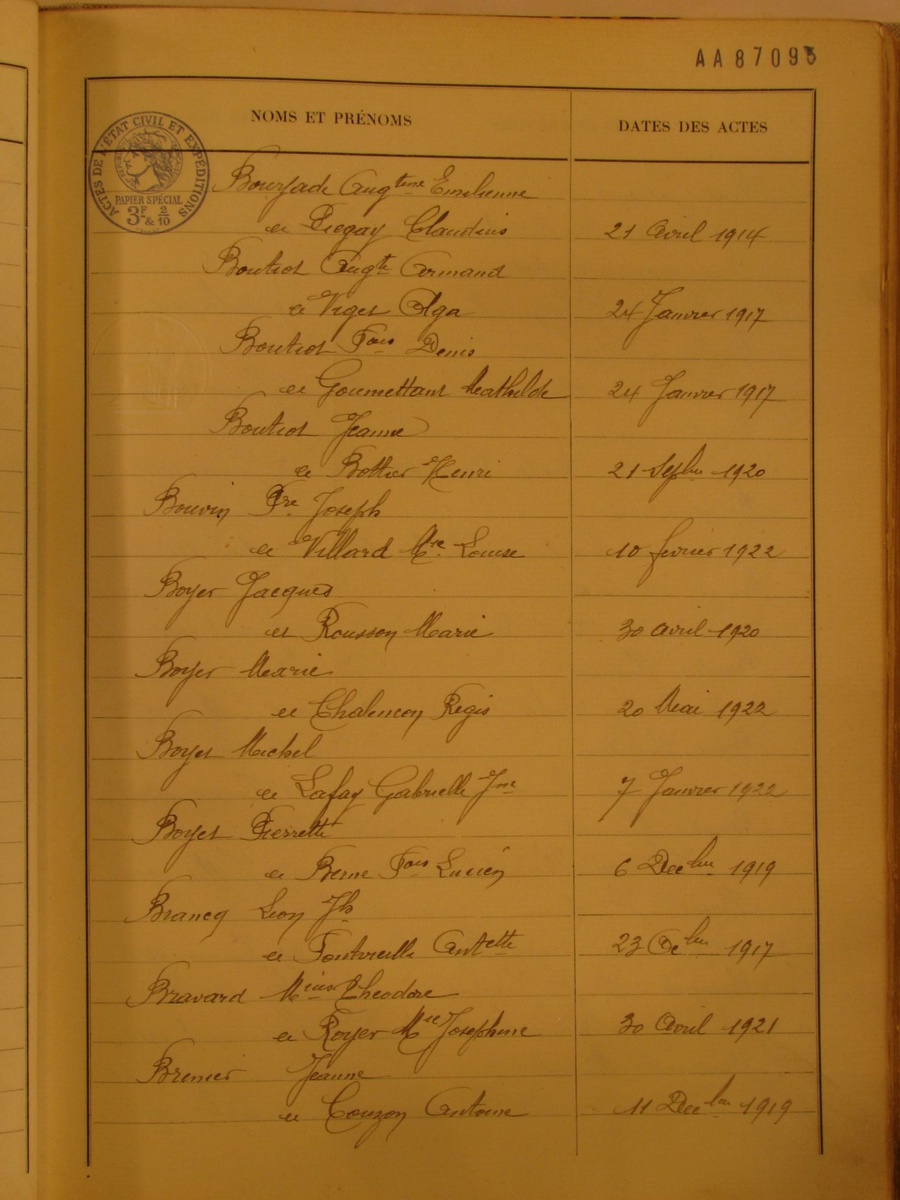 AA87095
NOMS ET PRÉNOMS
DATES DES ACTES
ACTES DE L'ÉTAT CIVIL ET EXPÉDITIONS
PAPIER SPÉCIAL
3F & 2/10
Augteine Emilienne
et Claudius 21 Avril 1914
Boutiot Augte Armand
et Viges Olga 24 Janvier 1917
Boutiot Fois Denis
et Goumettant Mathilde 24 Janvier 1917
Boutiot Jeanne
et Bottier Henri 21 Sepbre 1920
Bouvin Pre Joseph
et Villard Mie Louise 10 février 1922
Boyer Jacques
et Rousson Marie 30 avril 1920
Boyer Marie
et Chalencon Régis 20 Mai 1922
Boyer Michel
et Lafay Gabrielle Jne 7 Janvier 1922
Boyer Pierrette
et Berne Fois Lucien 6 Decbre 1919
Brancq Leon Jh
et Fontvieille Antette 23 Ocbre 1917
Bravard Theodore
et Royer Mie Josephine 30 Avril 1921
Brenier Jeanne
et Couzon Antoine 11 Decbre 1919